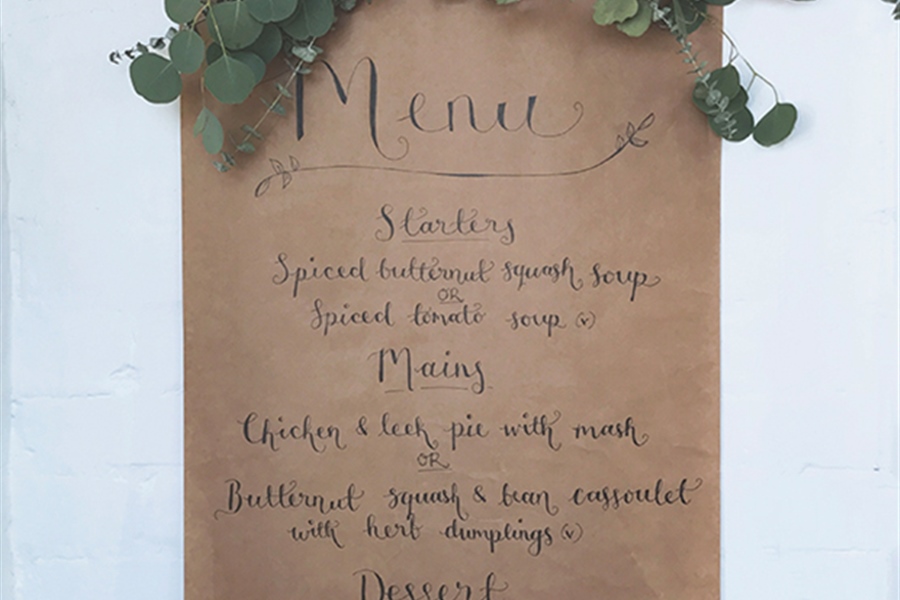 Menu
Starters
Spiced butternut squash soup
OR
Spiced tomato soup (v)
Mains
Chicken & leek pie with mash
OR
Butternut squash & bean cassoulet
with herb dumplings (v)
Dessert